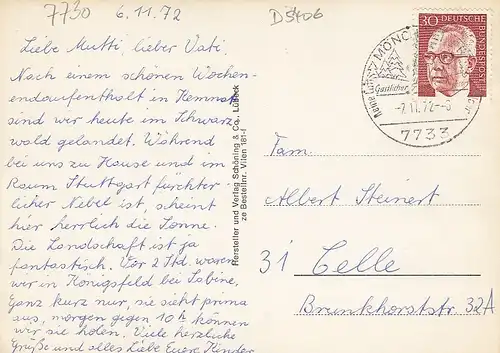 7730 6.11.72 D5406
Liebe Mutti, lieber Vati.
Nach einem schönen Wochen-
endaufenthalt in Kemnat
sind wir heute im Schwarz
wald gelandet. Während
bei uns zu Hause und im
Raum Stuttgart fürchter-
licher Nebel ist, scheint
hier herrlich die Sonne.
Die Landschaft ist ja
fantastisch. Vor 2 Std. waren
wir in Königsfeld bei Sabine,
ganz kurz nur, sie sieht prima
aus, morgen gegen 10h können
wir sie holen. Viele herzliche
Grüße und alles Liebe Euere Kinder
Hersteller und Verlag Schöning & Co., Lübeck
ze Bestellnr. Villen 181-f
30 DEUTSCHE
BUNDESPOST
MÖNC
Gastlicher
-7.11.72-
7733
Fam.
Albert Steinert
31 Celle
Brunkhorststr. 32A